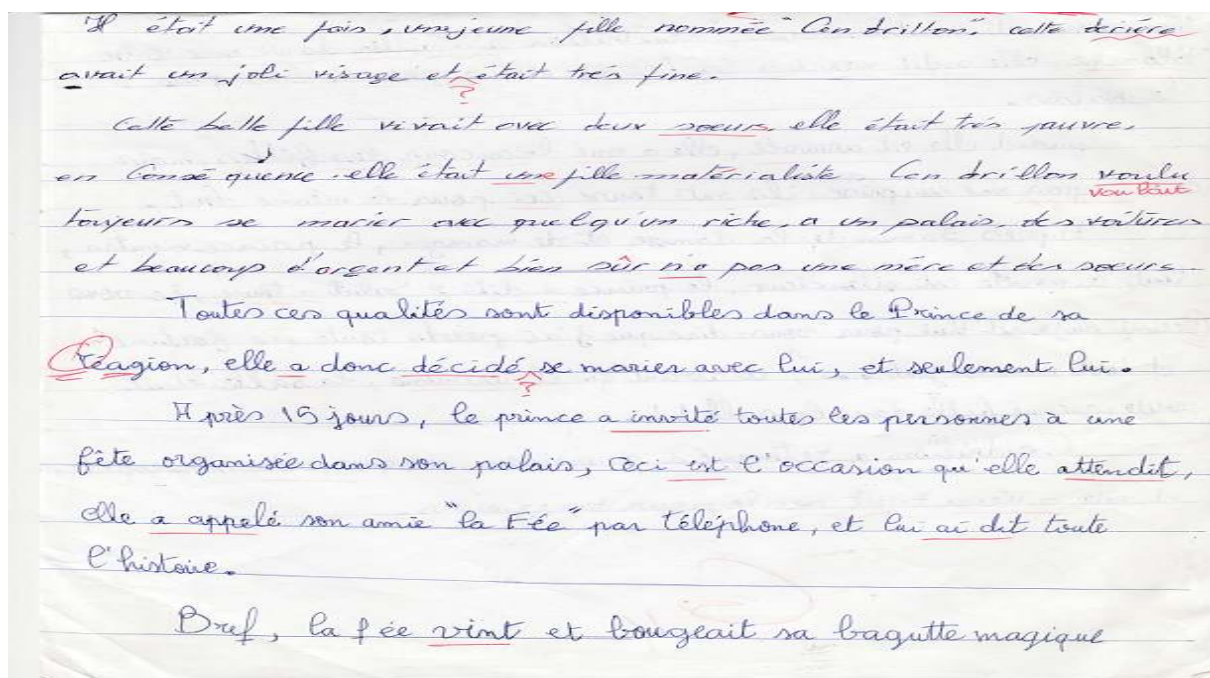 Il était une fois, une jeune fille nommée "Cendrillon", cette derière
avait un joli visage et était très fine.
?
Cette belle fille vivait avec deux soeurs, elle était très pauvre,
en Conséquence, elle était une fille matérialiste. Cendrillon voulu
voulait
toujeurs se marier avec quelqu'un riche, a un palais, des voitures
et beaucoup d'argent et bien sûr n'a pas une mère et des soeurs.
Toutes ces qualités sont disponibles dans le Prince de sa
réagion, elle a donc décidé se marier avec lui, et seulement lui.
?
Après 15 jours, le prince a invité toutes les personnes à une
fête organisée dans son palais, Ceci est l'occasion qu'elle attendit,
elle a appelé son amie "la Fée" par téléphone, et lui ai dit toute
l'histoire.
Bref, la fée vint et bougeait sa bagutte magique